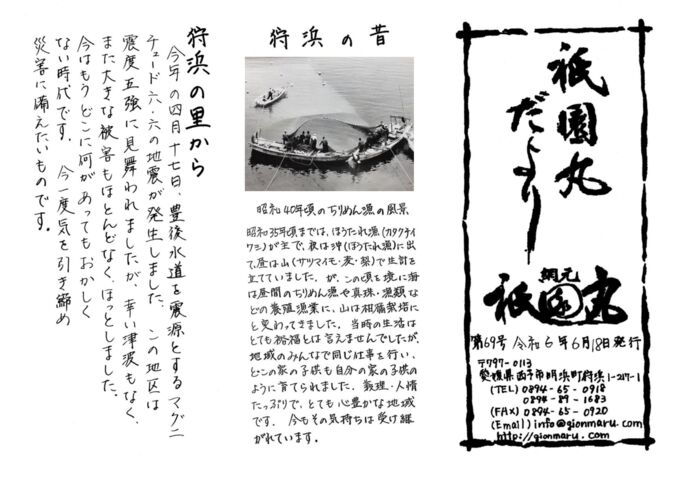 祇園丸
だより
網元
祇園丸
第69号 令和6年6月18日発行
〒797-0113
愛媛県西予市明浜町狩浜1-217-1
(TEL) 0894-65-0918
0894-89-1683
(FAX) 0894-65-0920
(Email) info@gionmaru.com
http://gionmaru.com
狩浜の昔
昭和40年頃のちりめん漁の風景
昭和35年頃までは、ほうたれ漁(カタクチイ
ワシ)が主で、夜は沖(ほうたれ漁)に出
て、昼は山(サツマイモ・麦・桑)で生計を
立てていました。が、この頃を境に海
は昼間のちりめん漁や真珠・漁類な
どの養殖漁業に、山は柑橘栽培に
と変わってきました。当時の生活は
とても裕福とは言えませんでしたが、
地域のみんなで同じ仕事を行い、
どこの家の子供も自分の家の子供の
ように育てられました。義理・人情
たっぷりで、とても心豊かな地域
です。今もその気持ちは受け継
がれています。
狩浜の里から
今年の四月十七日、豊後水道を震源とするマグニ
チュード六・六の地震が発生しました。この地区は
震度五強に見舞われましたが、幸い津波もなく、
また大きな被害もほとんどなく、ほっとしました。
今はもうどこに何があってもおかしく
ない時代です。今一度気を引き締め
災害に備えたいものです。